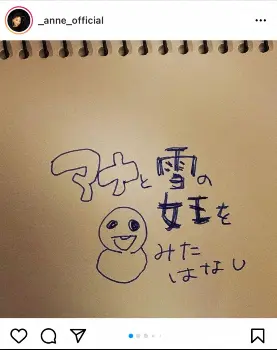 _anne_official
アナと雪の
女王を
みた
はなし